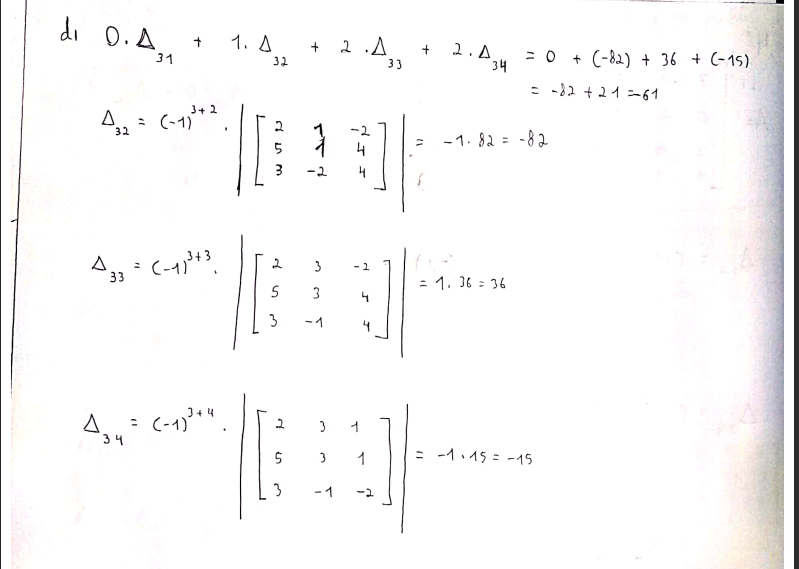 d) 0.Δ31 + 1.Δ32 + 2.Δ33 + 2.Δ34 = 0 + (-82) + 36 + (-15)
= -82 + 21 = -61
Δ32 = (-1)^3+2 . | [ 2 1 -2
5 1 4
3 -2 4 ] | = -1.82 = -82
Δ33 = (-1)^3+3 . | [ 2 3 -2
5 3 4
3 -1 4 ] | = 1.36 = 36
Δ34 = (-1)^3+4 . | [ 2 3 1
5 3 1
3 -1 -2 ] | = -1.15 = -15